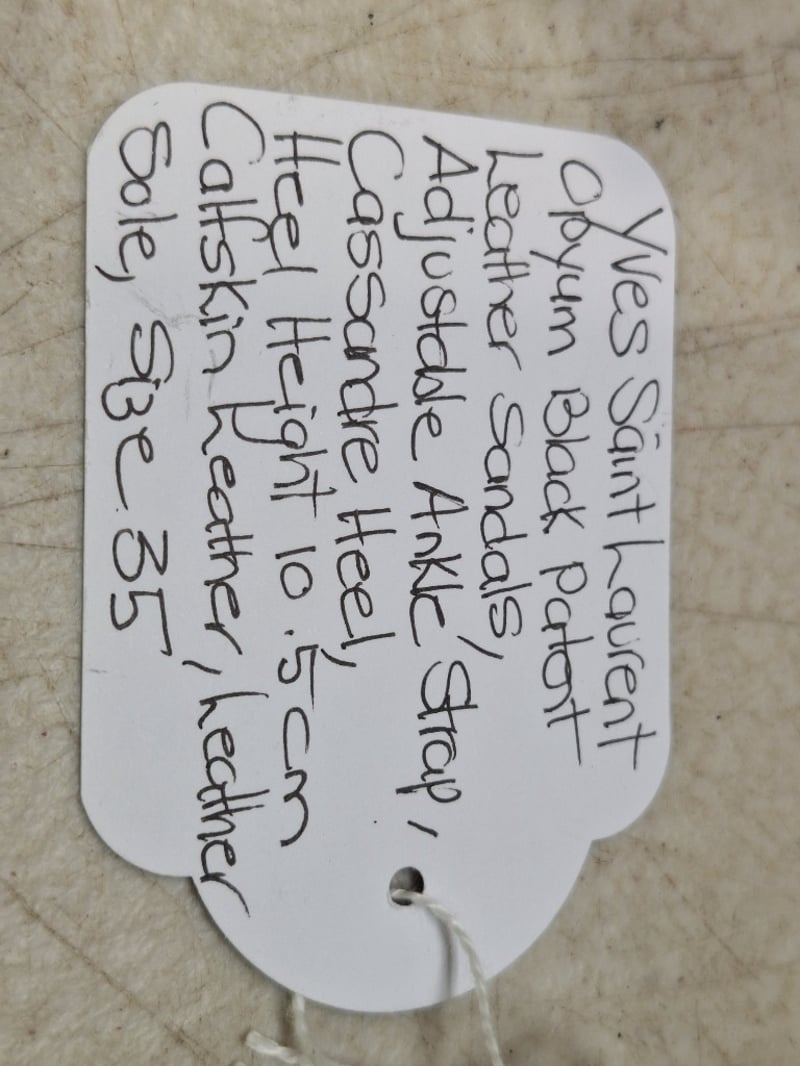 Yves Saint Laurent
Opyum Black Patent
Leather Sandals,
Adjustable Ankle Strap,
Cassandre Heel,
Heel Height 10.5cm
Calfskin Leather, Leather
Sole, Size 35